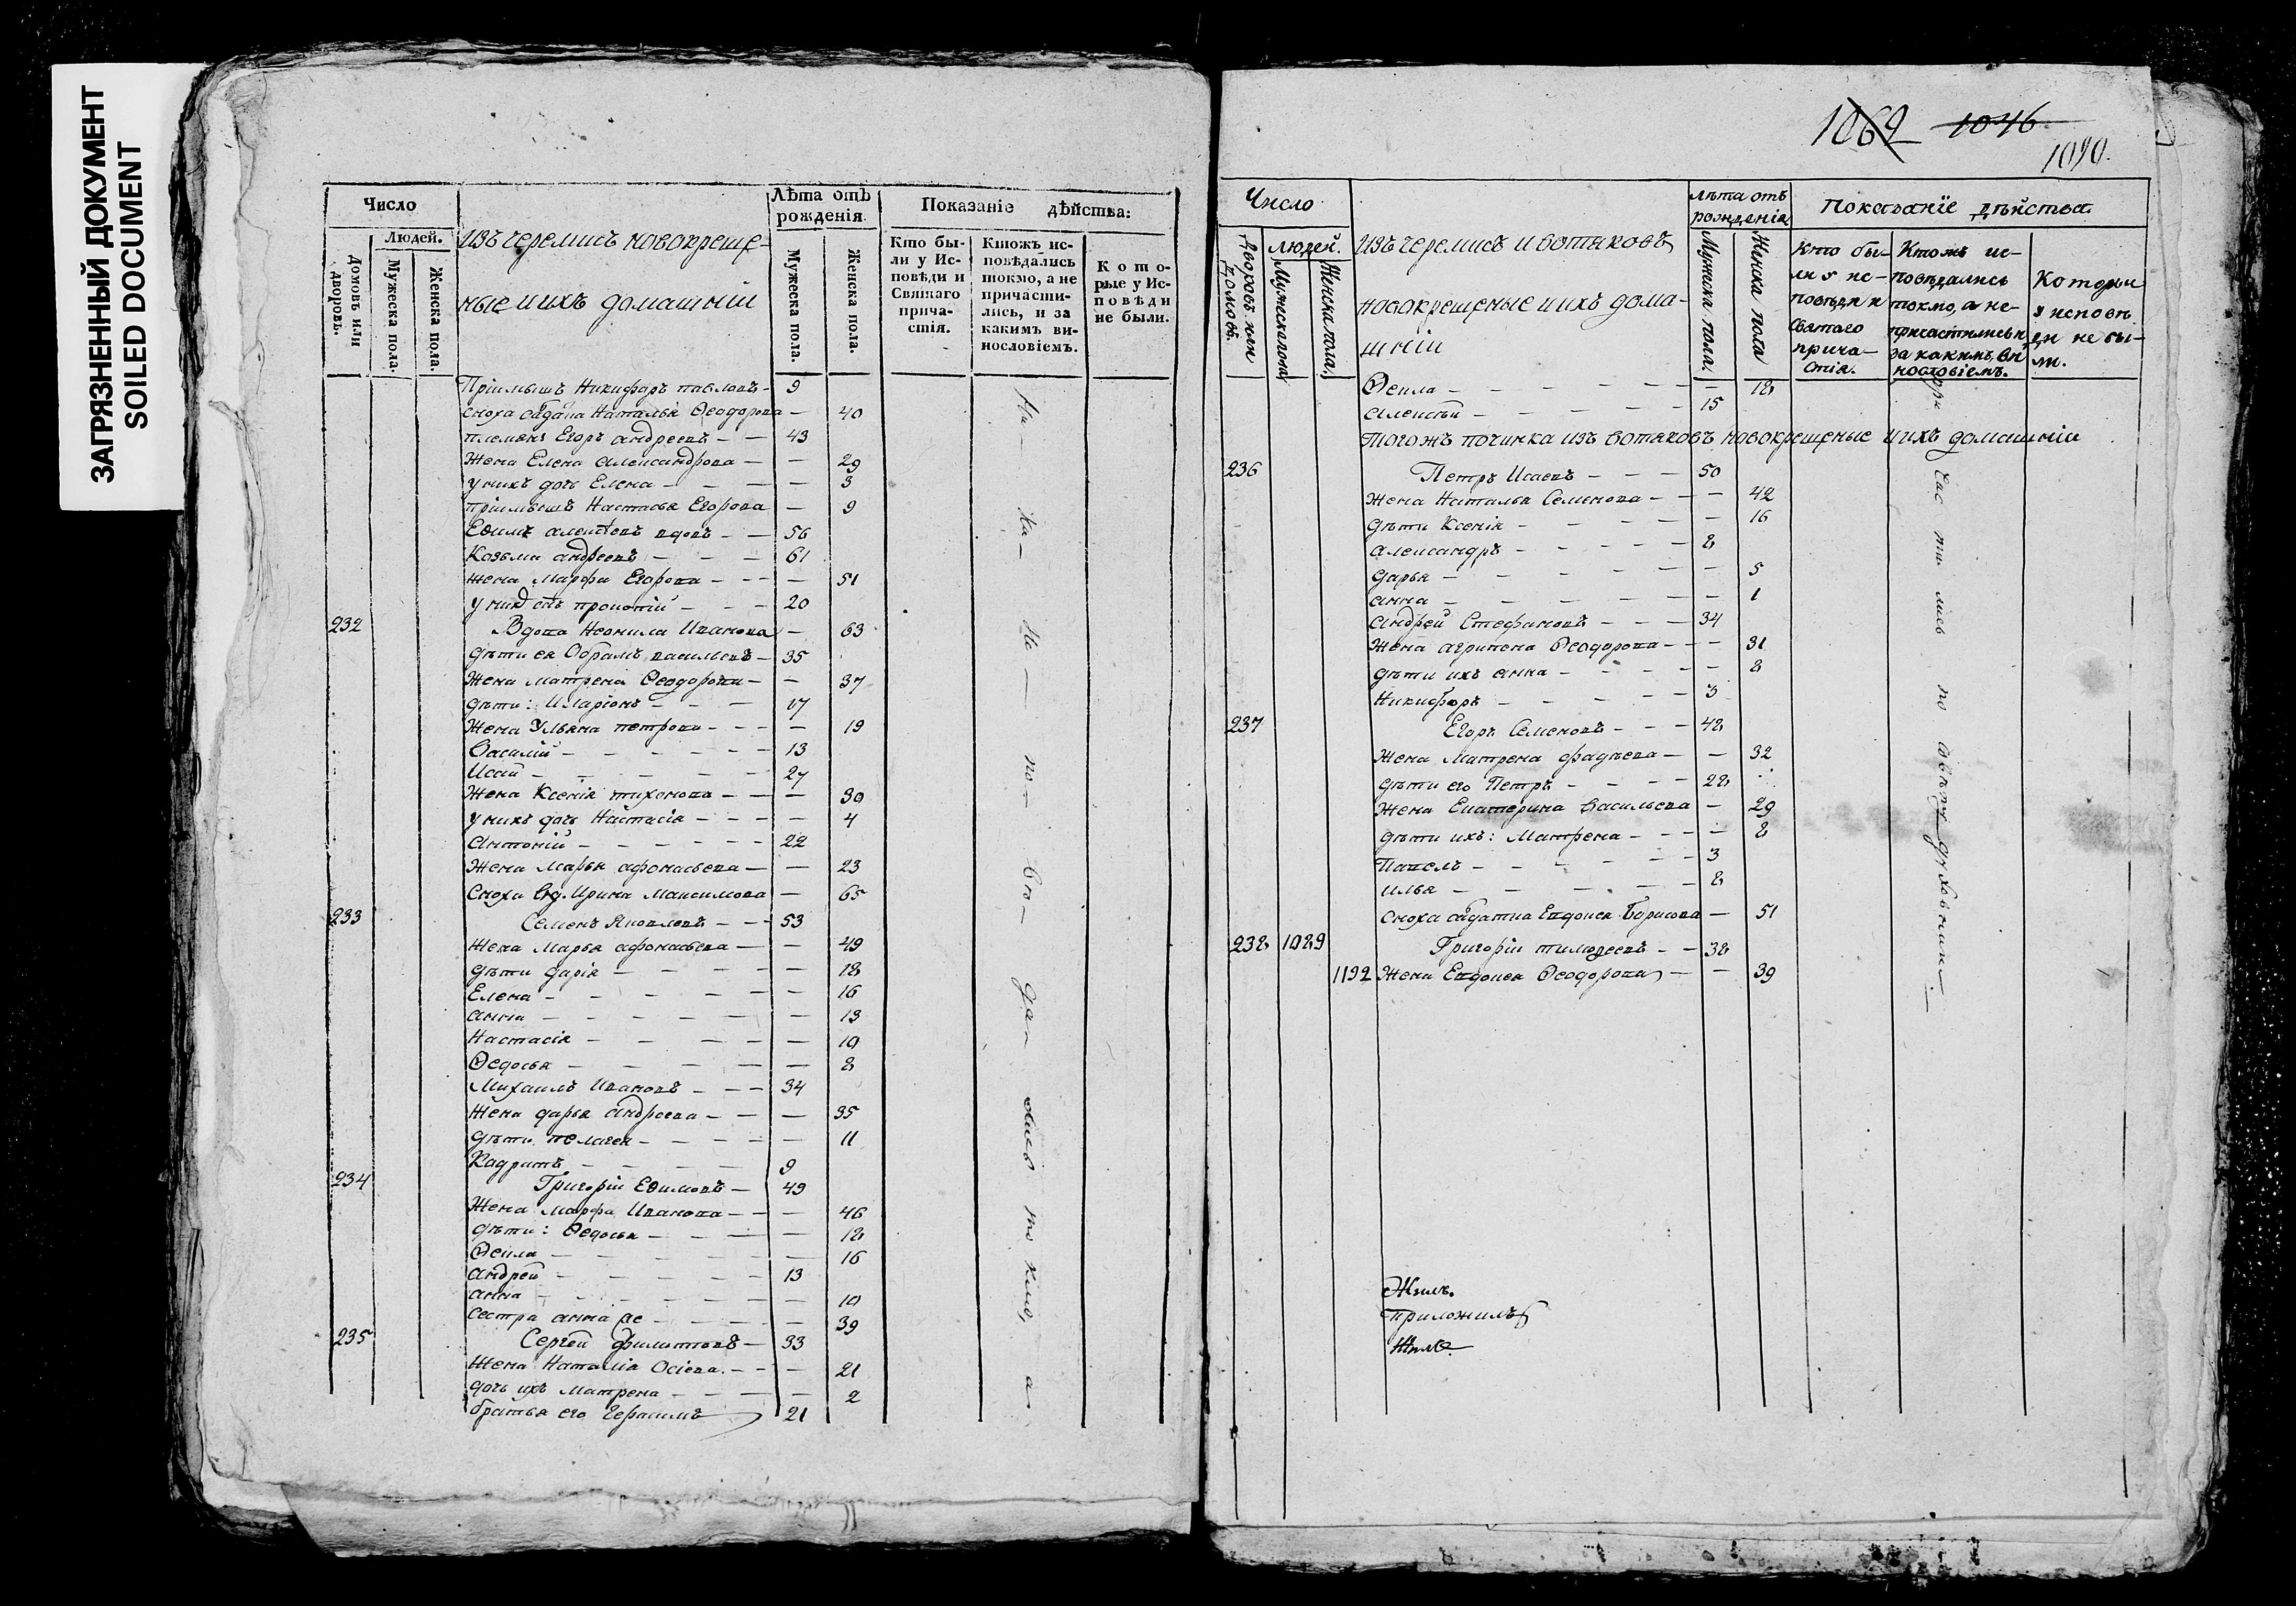 ЗАГРЯЗНЕННЫЙ ДОКУМЕНТ
SOILED DOCUMENT
Число
Людей.
Домовъ или дворовъ.
Мужеска пола.
Женска пола.
изъ черемисъ новокреще-
ные и ихъ домашнiи
Лѣта отъ рожденiя.
Мужеска пола.
Женска пола.
Показанiе дѣйства:
Кто бы-
ли у Ис-
повѣди и
Святаго
прича-
стiя.
Ктожъ ис-
повѣдались
токмо, а не
причасти-
лись, и за
какимъ ви-
нословiемъ.
Кото-
рые у Ис-
повѣди
не были.
Прiимышъ Никифоръ павловъ - 9
сноха Наталья Ѳеодорова — 40
племян: Егоръ андреевъ — — 43
Жена Елена александрова — — 29
у нихъ дочь Елена — — — 3
прiимышъ Настасья Егорова — 9
Еѳимъ алексѣевъ вдовъ — — 56
Козьма андреевъ — — — 61
Жена Марфа Егорова — — — 51
у нихъ сынъ прокопiй — — — 20
232 Вдова Неонила Иванова — 63
дѣти ея Абрамъ васильевъ — 35
Жена матрена Ѳеодорова — — 37
дѣти: Иларiонъ — — — 17
Жена Ульяна петрова — — — 19
Василiй — — — — — 13
Исай — — — — — 27
Жена Ксенiя тихонова — — — 30
у нихъ дочь Настасiя — — — 4
Антонiй — — — — — 22
Жена Марья афонасьева — — 23
Сноха вд. Ирина Максимова — 65
233 Семенъ Яковлевъ — — 53
Жена Марья афонасьева — — 49
дѣти дарiя — — — — — 18
Елена — — — — — — 16
анна — — — — — — 13
Настасiя — — — — — 10
Ѳедосья — — — — — — 8
Михаилъ Ивановъ — — — 34
Жена дарья андреева — — — 35
дѣти пелагея — — — — — 11
Кадратъ — — — — 9
234 Григорiй Еѳимовъ — 49
Жена Марфа Иванова — — — 46
дѣти: Ѳедосья — — — — 18
Ѳекла — — — — — 16
андрей — — — — — 13
анна — — — — — — 10
сестра анна — — — — 39
235 Сергей филиповъ — 33
Жена Наталiя Осiева. — — — 21
дочь ихъ Матрена — — — — 2
братья его Еѳраимъ 21
1062 1046
1090.
Число
Людей.
Дворовъ или домовъ.
Мужеска пола
Женска пола.
изъ черемисъ и вотяковъ
новокрещеные и ихъ дома-
шнiи
лѣта отъ рожденiя
Мужеска пола.
Женска пола
Показанïе дѣйства.
Кто бы-
ли у ис-
повѣди и
Святаго
прича-
стiя.
Ктожъ ис-
повѣдались
токмо, а не-
причастились и
за какимъ ви
нословiемъ.
Которыи
у исповѣ
ди не бы-
ли.
Ѳекла — — — — — — 18
алексѣй — — — — — 15
Тогожъ починка изъ вотяковъ новокрещеные и ихъ домашнiи
236 Петръ Исаевъ — — — 50
жена Наталья Семенова — — — 42
дѣти Ксенiя — — — — — 16
александръ — — — — — 8
дарья — — — — — — 5
анна — — — — — — 1
андрей Стефановъ — — — 34
жена агрипена Ѳеодорова — — — 31
дѣти ихъ анна — — — — — 8
Никифоръ — — — — — 3
237 Егоръ Семеновъ — — — 48
жена Матрена фадѣева — — 32
дѣти его Петръ — — — — 28
жена Екатерина Васильева — 29
дѣти ихъ: Матрена — — — — 8
Павелъ — — — — — — 3
илья — — — — — 8
сноха Евдокея Борисова — 51
238 1089 Григорiй тимоѳеевъ — — 38
1192 жена Евдокея Ѳеодорова — — 39
Жилъ.
Приложилъ
Жилъ